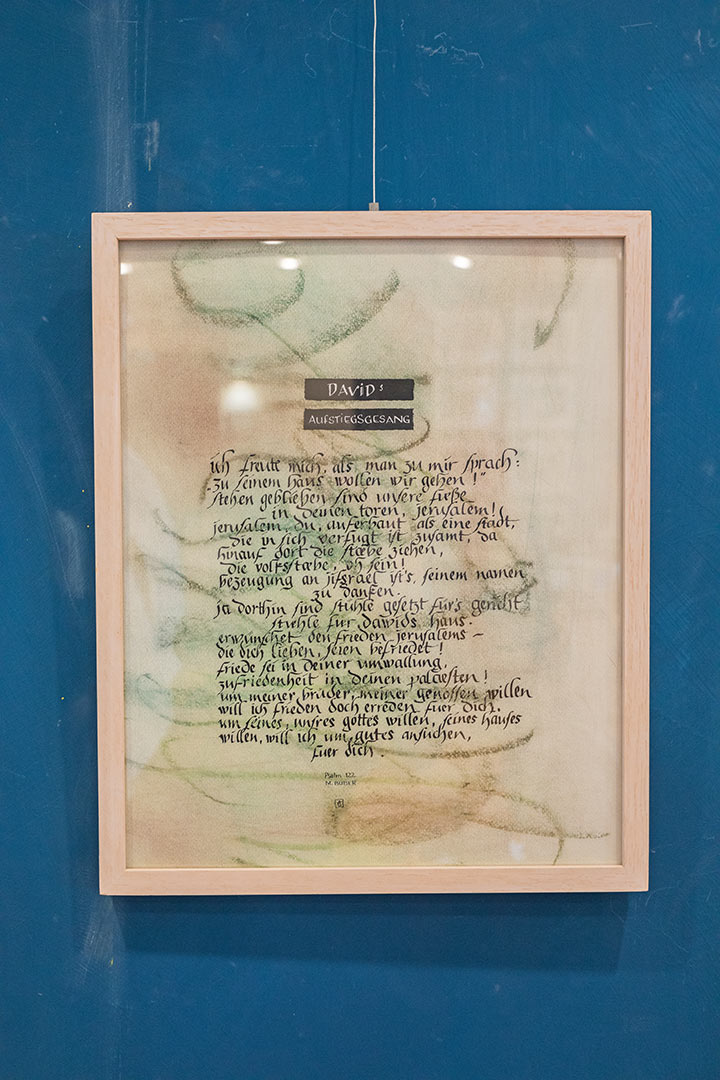 DAViD s
AUFSTIEGSGESANG
ich freute mich, als man zu mir sprach:
„zu seinem haus wollen wir gehen!"
stehen geblieben sind unsere fueße
in deinen toren, jerusalem!
jerusalem, du, auferbaut als eine stadt,
die in sich verfugt ist zusamt, da
hinauf dort die stæbe ziehen,
die volksstæbe, oh sein!
bezeugung an jifsrael ist's, seinem namen
zu danken.
ja dorthin sind stühle gesetzt für's gericht
stuehle für dawids haus.
erwünschet den frieden jerusalems –
die dich lieben, seien befriedet!
friede sei in deiner umwallung,
zufriedenheit in deinen palæsten!
um meiner brüder, meiner genossen willen
will ich frieden doch erreden fuer dich.
um seines, unsres gottes willen, seines hauses
willen, will ich um gutes ansuchen,
fuer dich.
Psalm 122
M. BUBER